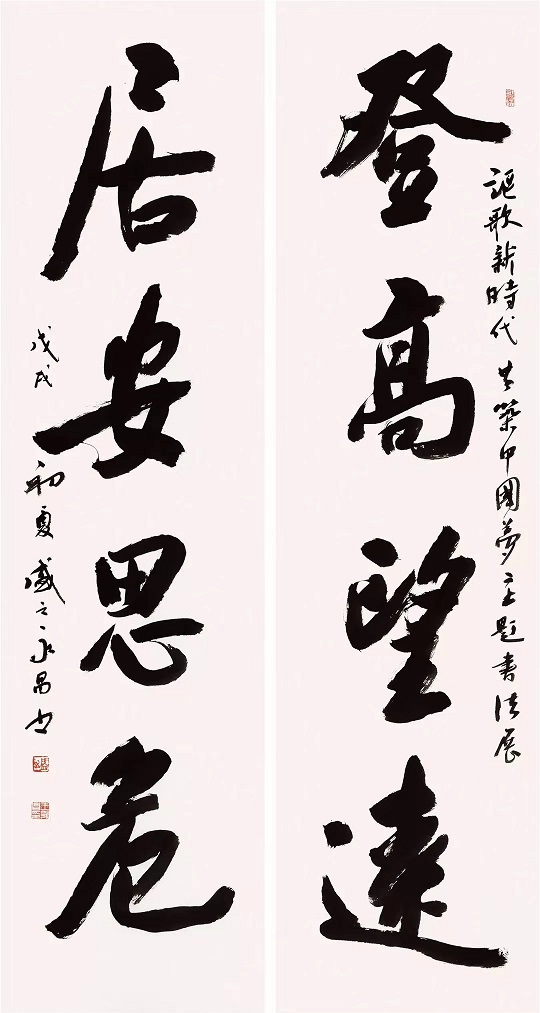 謳歌新時代共築中國夢主題書法展
登高望遠
居安思危
戊戌初夏盛之永昌書